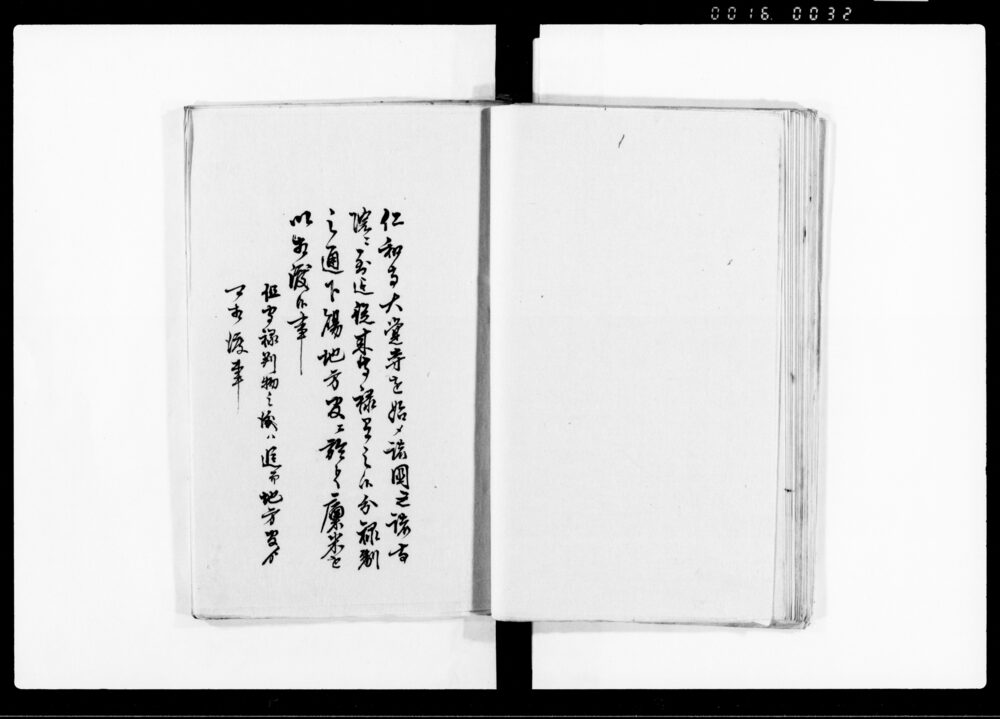 0016. 0032
仁和寺大覚寺を始メ諸国之諸寺
院ニ至迄従来寺禄有之候分禄制
之通下賜地方官ニ於て廩米を
以相渡候事
但寺禄判物之儀ハ追而地方官ゟ
可相渡事